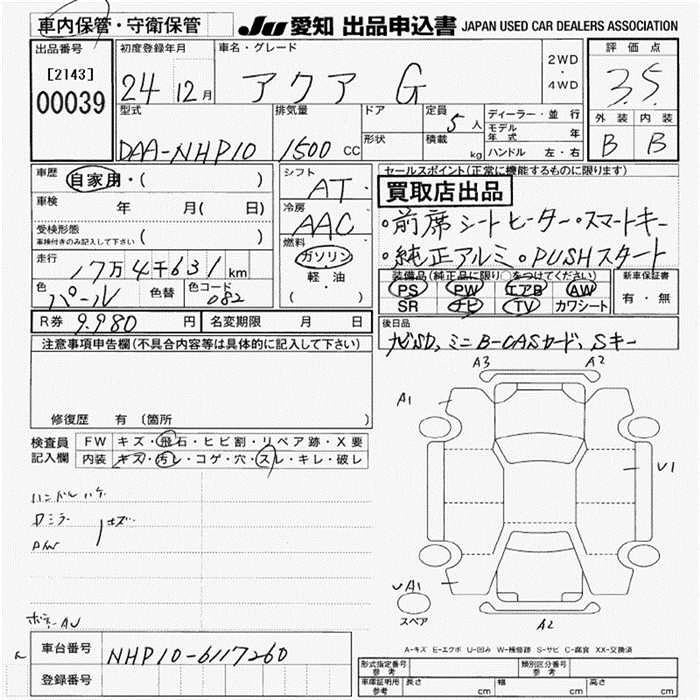 車内保管・守衛保管 JU 愛知 出品申込書 JAPAN USED CAR DEALERS ASSOCIATION
出品番号 初度登録年月 車名・グレード 2WD・4WD 評価点
[2143] 00039 24 12月 アクア G 3.5
型式 排気量 ドア 定員 5人 ディーラー・並行 外装 内装
モデル年式 年
DAA-NHP10 1500 CC 形状 積載 kg ハンドル 左・右 B B
車歴 自家用・( ) シフト AT セールスポイント(正常に機能するものに限ります)
買取店出品
車検 年 月( 日) 冷房 AAC ・前席シートヒーター・スマートキー
受検形態 車検付きのみ記入して下さい ( ) 燃料 ガソリン ・純正アルミ・PUSHスタート
走行 17万4千631km 軽・油 ( ) 装備品(純正品に限り○をつけてください) 新車保証書
色 パール 色替 色コード 082 PS PW エアB AW 有・無
SR ナビ TV カワシート
R券 9.980 円 名変期限 月 日 後日品
注意事項申告欄(不具合内容等は具体的に記入して下さい) ナビSD、ミニB-CASカード、Sキー
修復歴 有 (箇所
検査員記入欄 FW キズ・飛石・ヒビ割・リペア跡・X要
内装 キズ・汚レ・コゲ・穴・スレ・キレ・破レ
A3 A2
A1
U1
ハンドルハゲ
Dミラー キズ
A1
スペア
A2
A-キズ E-エクボ U-凹み W-補修跡 S-サビ C-腐食 XX-交換済
車台番号 NHP10-6117260
登録番号
形式指定番号 参考 類別区分番号 参考
車庫証明用 参考 長さ cm 幅 cm 高さ cm